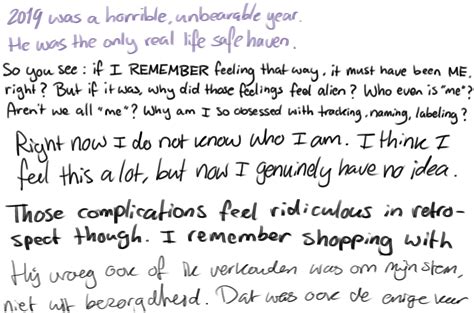 2019 was a horrible, unbearable year.
He was the only real life safe haven.
So you see: if I REMEMBER feeling that way, it must have been ME,
right? But if it was, why did those feelings feel alien? Who even is "me"?
Aren't we all "me"? Why am I so obsessed with tracking, naming, labeling?
Right now I do not know who I am. I think I
feel this a lot, but now I genuinely have no idea.
Those complications feel ridiculous in retro-
spect though. I remember shopping with
Hij vroeg ook of ik verkouden was om mijn stem,
niet uit bezorgdheid. Dat was ook de enige keer